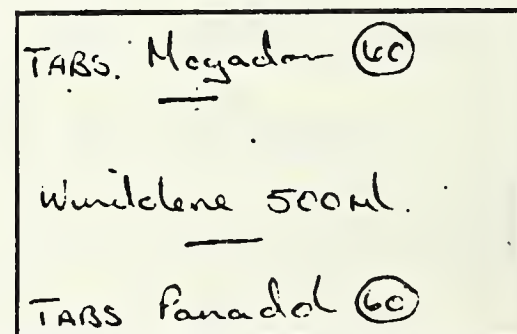 TABS. Mogadon 60
Wurildene 500ml.
TABS Panadol 60